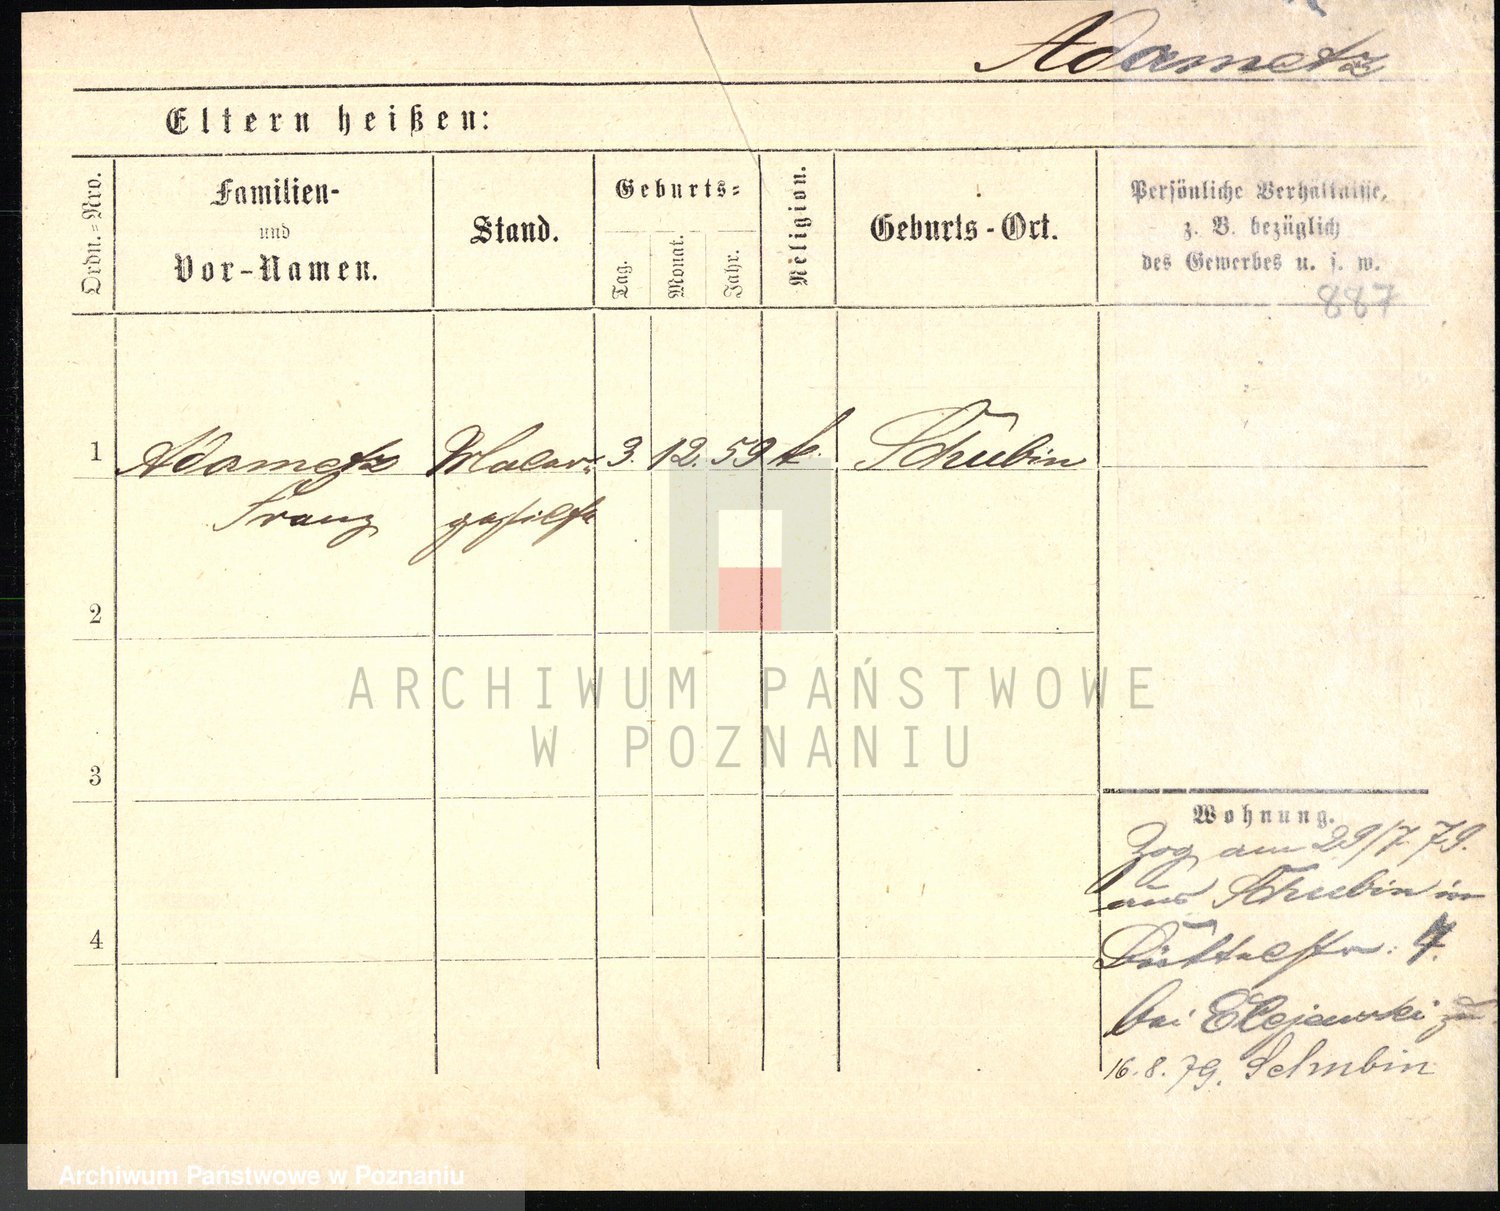 Adametz
Eltern heißen:
Ordn.=Nro.
Familien-
und
Vor-Namen.
Stand.
Geburts=
Tag.
Monat.
Jahr.
Religion.
Geburts-Ort.
Persönliche Verhältnisse,
z. B. bezüglich
des Gewerbes u. s. w.
887
1 Adametz Maler= 3. 12. 59 k. Schubin
Franz gehilfe
2
3
4
ARCHIWUM PAŃSTWOWE
W POZNANIU
Wohnung.
Zog am 29/7. 79.
aus Schubin in
Büttelstr. 7.
bei Elejewski zu
16.8.79. Schubin
Archiwum Państwowe w Poznaniu